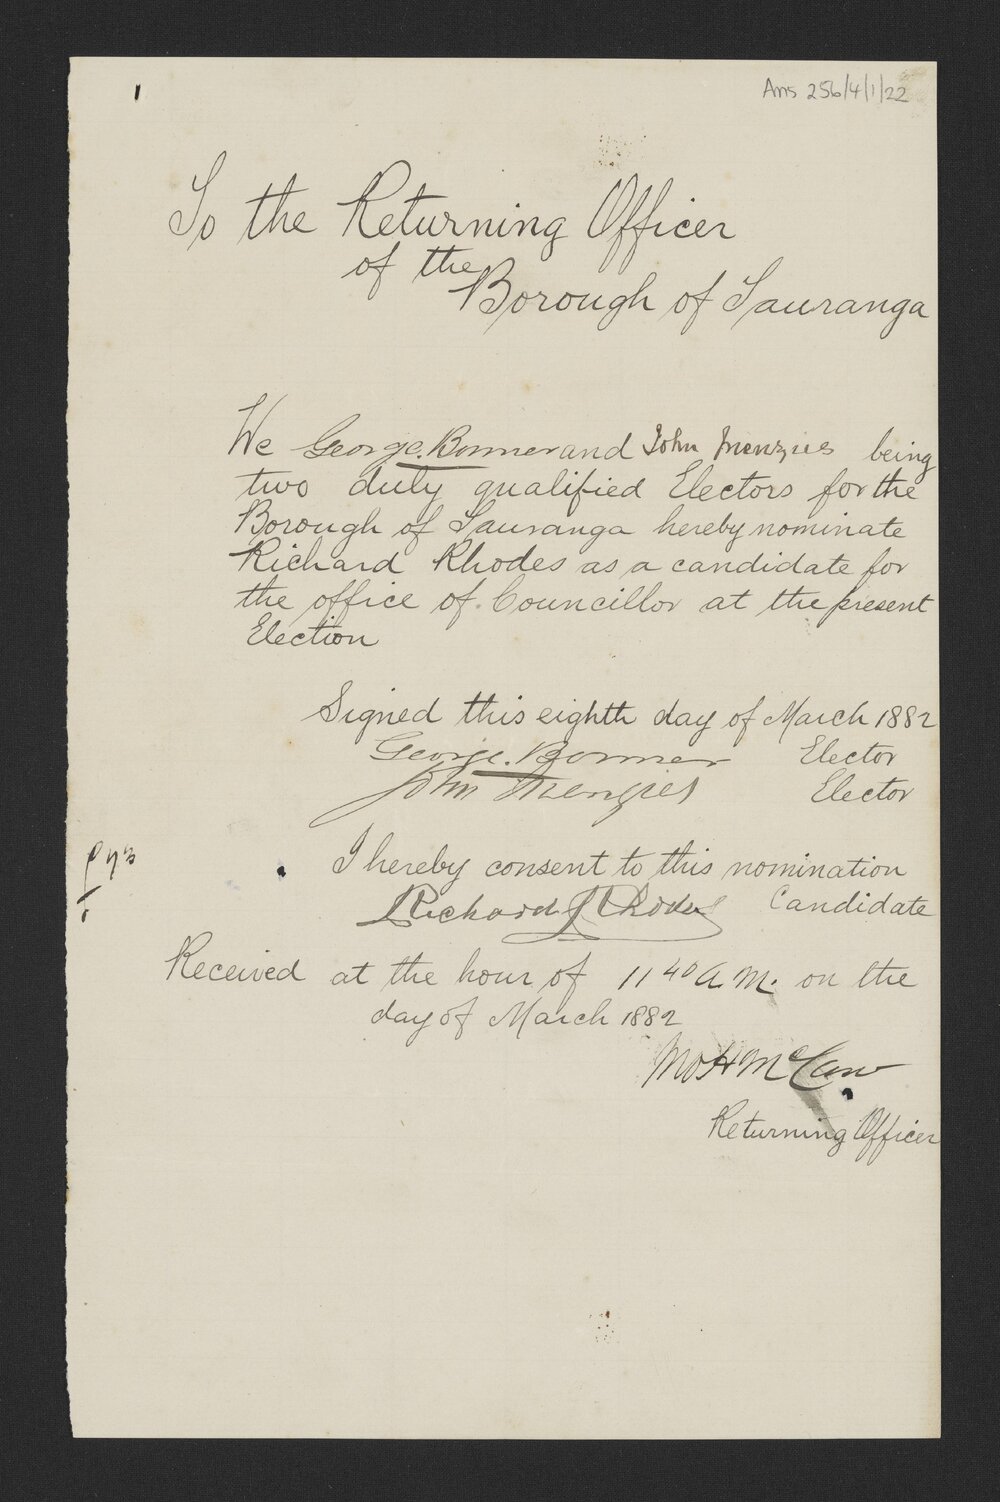 Ams 256/4/1/22
To the Returning Officer
of the
Borough of Tauranga
We George. Bonner and John Menzies being
two duly qualified Electors for the
Borough of Tauranga hereby nominate
Richard Rhodes as a candidate for
the office of Councillor at the present
Election
Signed this eighth day of March 1882
George. Bonner Elector
John Menzies Elector
I hereby consent to this nomination
Richard J Rhodes Candidate
Received at the hour of 11 40 a.m. on the
day of March 1882
McCaw
Returning Officer